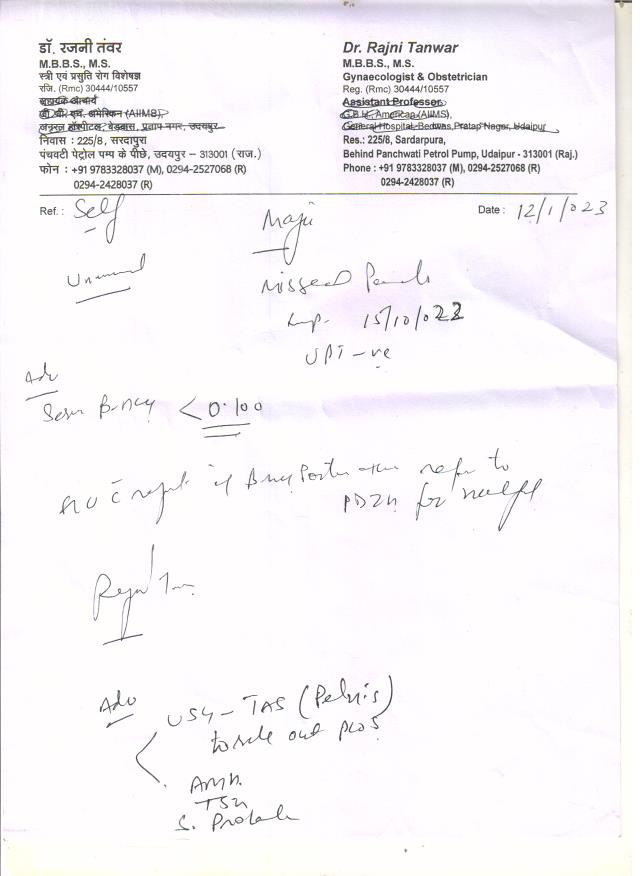 डॉ. रजनी तंवर
M.B.B.S., M.S.
स्त्री एवं प्रसुति रोग विशेषज्ञ
रजि. (Rmc) 30444/10557
सहायक आचार्य
जी.बी.एच. अमेरिकन (AIIMS),
हॉस्पीटल, बेडवास, प्रताप नगर, उदयपुर
निवास : 225/8, सरदापुरा
पंचवटी पेट्रोल पम्प के पीछे, उदयपुर – 313001 (राज.)
फोन : +91 9783328037 (M), 0294-2527068 (R)
0294-2428037 (R)
Dr. Rajni Tanwar
M.B.B.S., M.S.
Gynaecologist & Obstetrician
Reg. (Rmc) 30444/10557
Assistant Professor
G.B.H. American (AIIMS),
General Hospital, Bedwas, Pratap Nagar, Udaipur
Res.: 225/8, Sardarpura,
Behind Panchwati Petrol Pump, Udaipur - 313001 (Raj.)
Phone : +91 9783328037 (M), 0294-2527068 (R)
0294-2428037 (R)
Ref. : Self
Date : 12/1/023
Missed
Lmp. 15/10/022
UPT -ve
Adv
B-HCG < 0.100
if refer to
for
Adv
USG - TAS (Pelvis)
to rule out PCOS
AMH.
TSH
S.